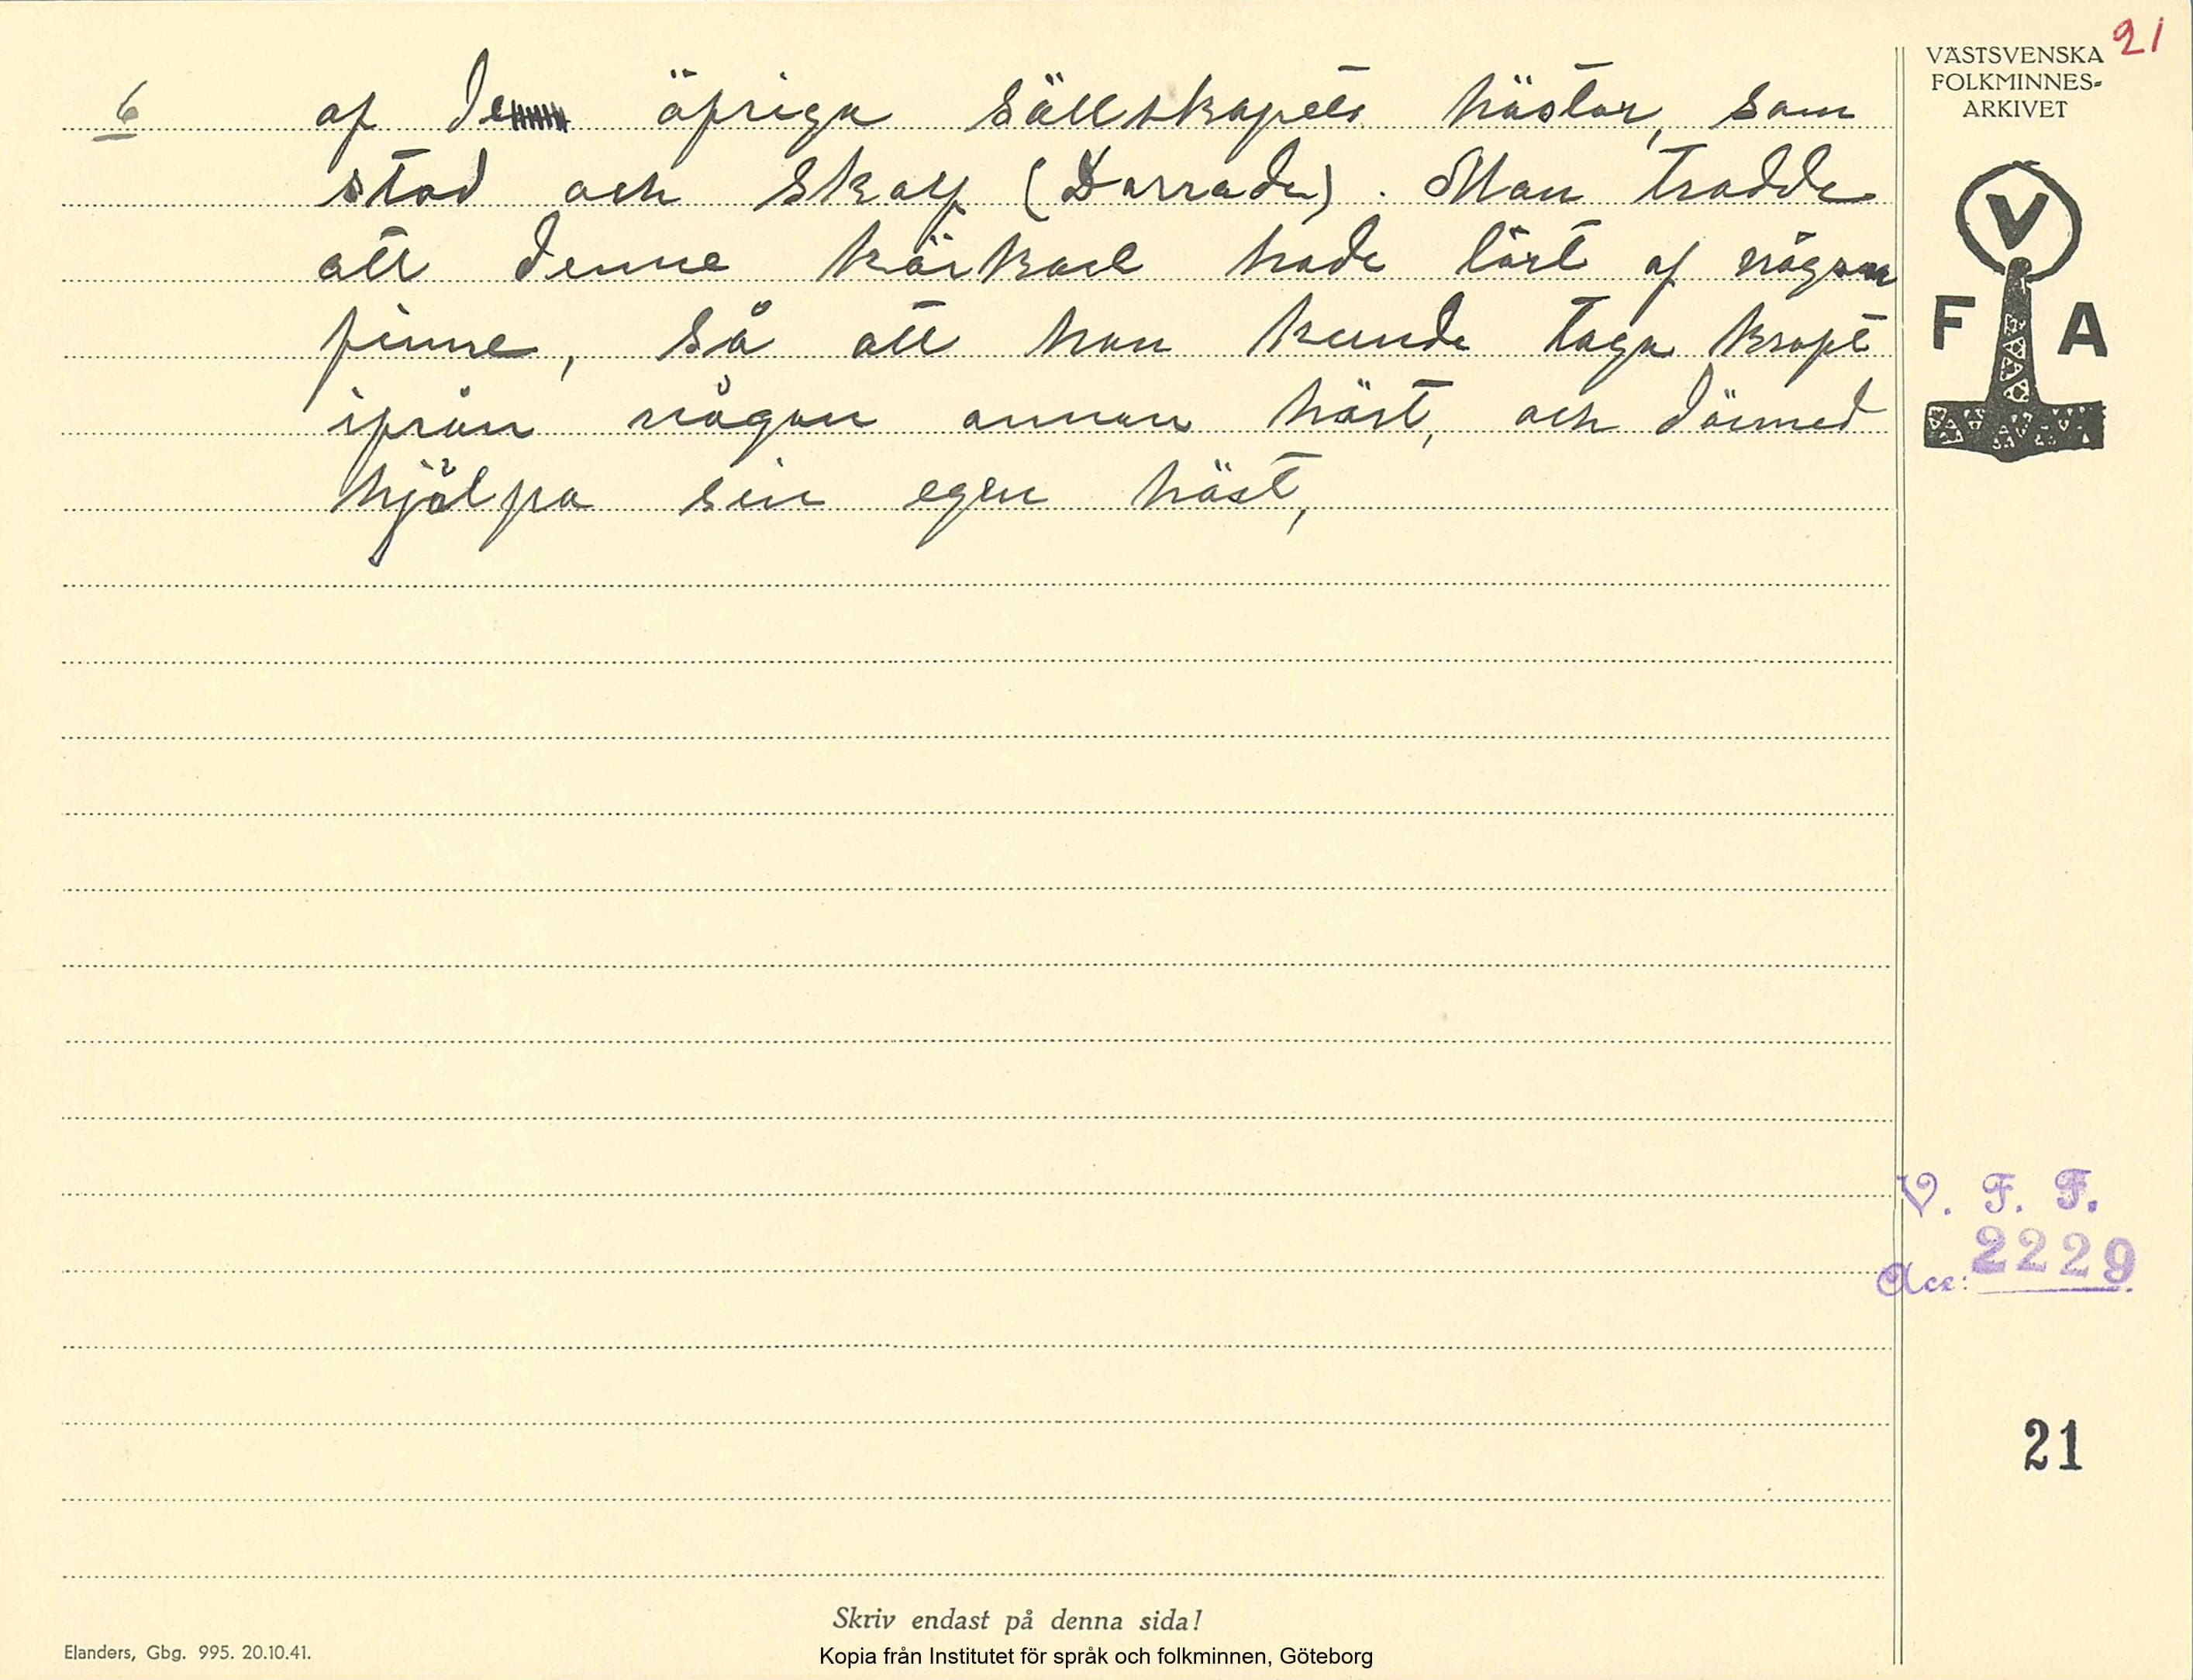 21
VÄSTSVENSKA
FOLKMINNES-
ARKIVET
6 af de öfriga sällskapets hästar, som
stod och skalf (Darrade). Man trodde
att denne körkarl hade lärt af någon
finne, så att han kunde taga kraft
ifrån någon annan häst, och därmed
hjälpa sin egen häst,
V
F A
V. F. F.
Acc: 2229
21
Skriv endast på denna sida!
Elanders, Gbg. 995. 20.10.41.
Kopia från Institutet för språk och folkminnen, Göteborg